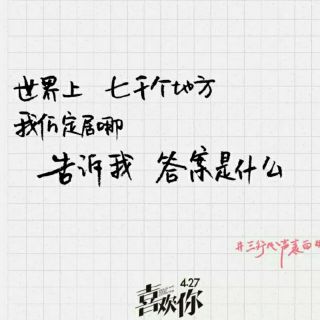 世界上 七千个地方
我们定居哪
告诉我 答案是什么
#三行心声表白#
4.27
喜欢你